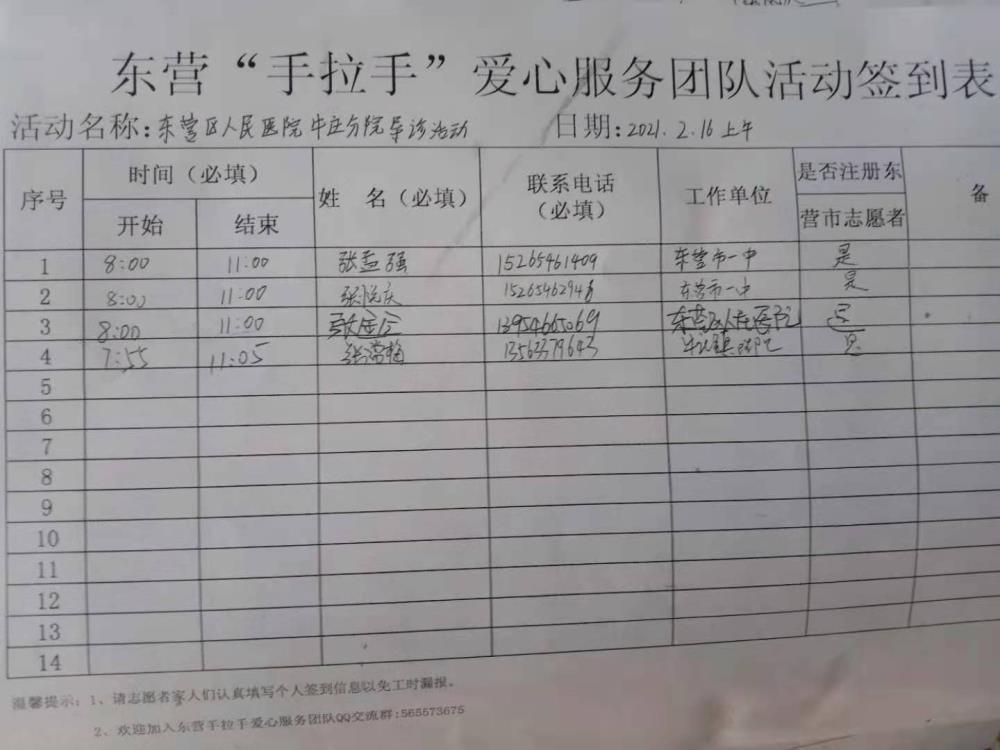 东营“手拉手”爱心服务团队活动签到表
活动名称:东营区人民医院牛庄分院导诊活动 日期:2021.2.16上午
序号 时间（必填） 姓 名（必填） 联系电话（必填） 工作单位 是否注册东营市志愿者 备
开始 结束
1 8:00 11:00 张孟强 15265461409 东营市一中 是
2 8:00 11:00 张悦庆 15265462946 东营市一中 是
3 8:00 11:00 13954665069 东营区人民医院 是
4 7:55 11:05 张常梅 13563379643 是
5
6
7
8
9
10
11
12
13
14
温馨提示：1、请志愿者家人们认真填写个人签到信息以免工时漏报。
2、欢迎加入东营手拉手爱心服务团队QQ交流群:565573675